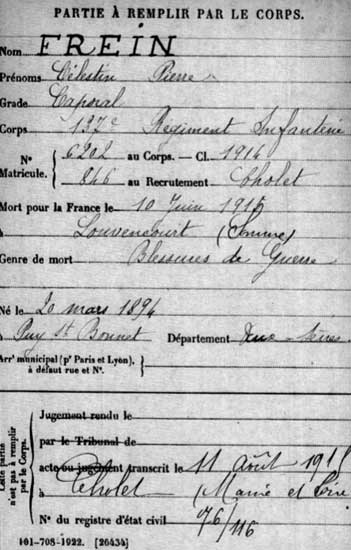 PARTIE À REMPLIR PAR LE CORPS.
Nom FREIN
Prénoms Célestin Pierre
Grade Caporal
Corps 137e Régiment Infanterie
N° Matricule. 6202 au Corps. — Cl. 1914
846 au Recrutement Cholet
Mort pour la France le 10 Juin 1915
à Louvencourt (Somme)
Genre de mort Blessures de Guerre
Né le 20 mars 1894
à Puy St Bonnet Département Deux-Sèvres
Arrt municipal (pr Paris et Lyon), à défaut rue et N°.
Cette partie n'est pas à remplir par le Corps.
Jugement rendu le
par le Tribunal de
acte ou jugement transcrit le 11 Août 191
à Cholet (Maine et Loire
N° du registre d'état civil 76/116
101-708-1922. [26434]